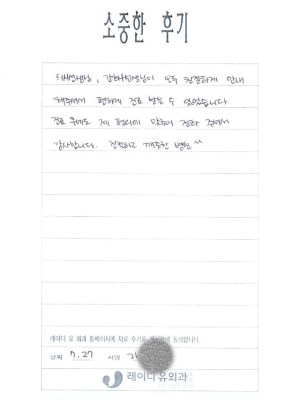 소중한 후기
의사선생님, 간호사선생님이 모두 친절하게 안내
해주셔서 편하게 진료 받을 수 있었습니다
진료 후에도 제 편의에 맞추어 전화 주셔서
감사합니다. 친절하고 깨끗한 병원 ^^
레이디 유 외과 홈페이지에 치료 후기를 동의합니다.
날짜 7.27 서명
레이디유외과